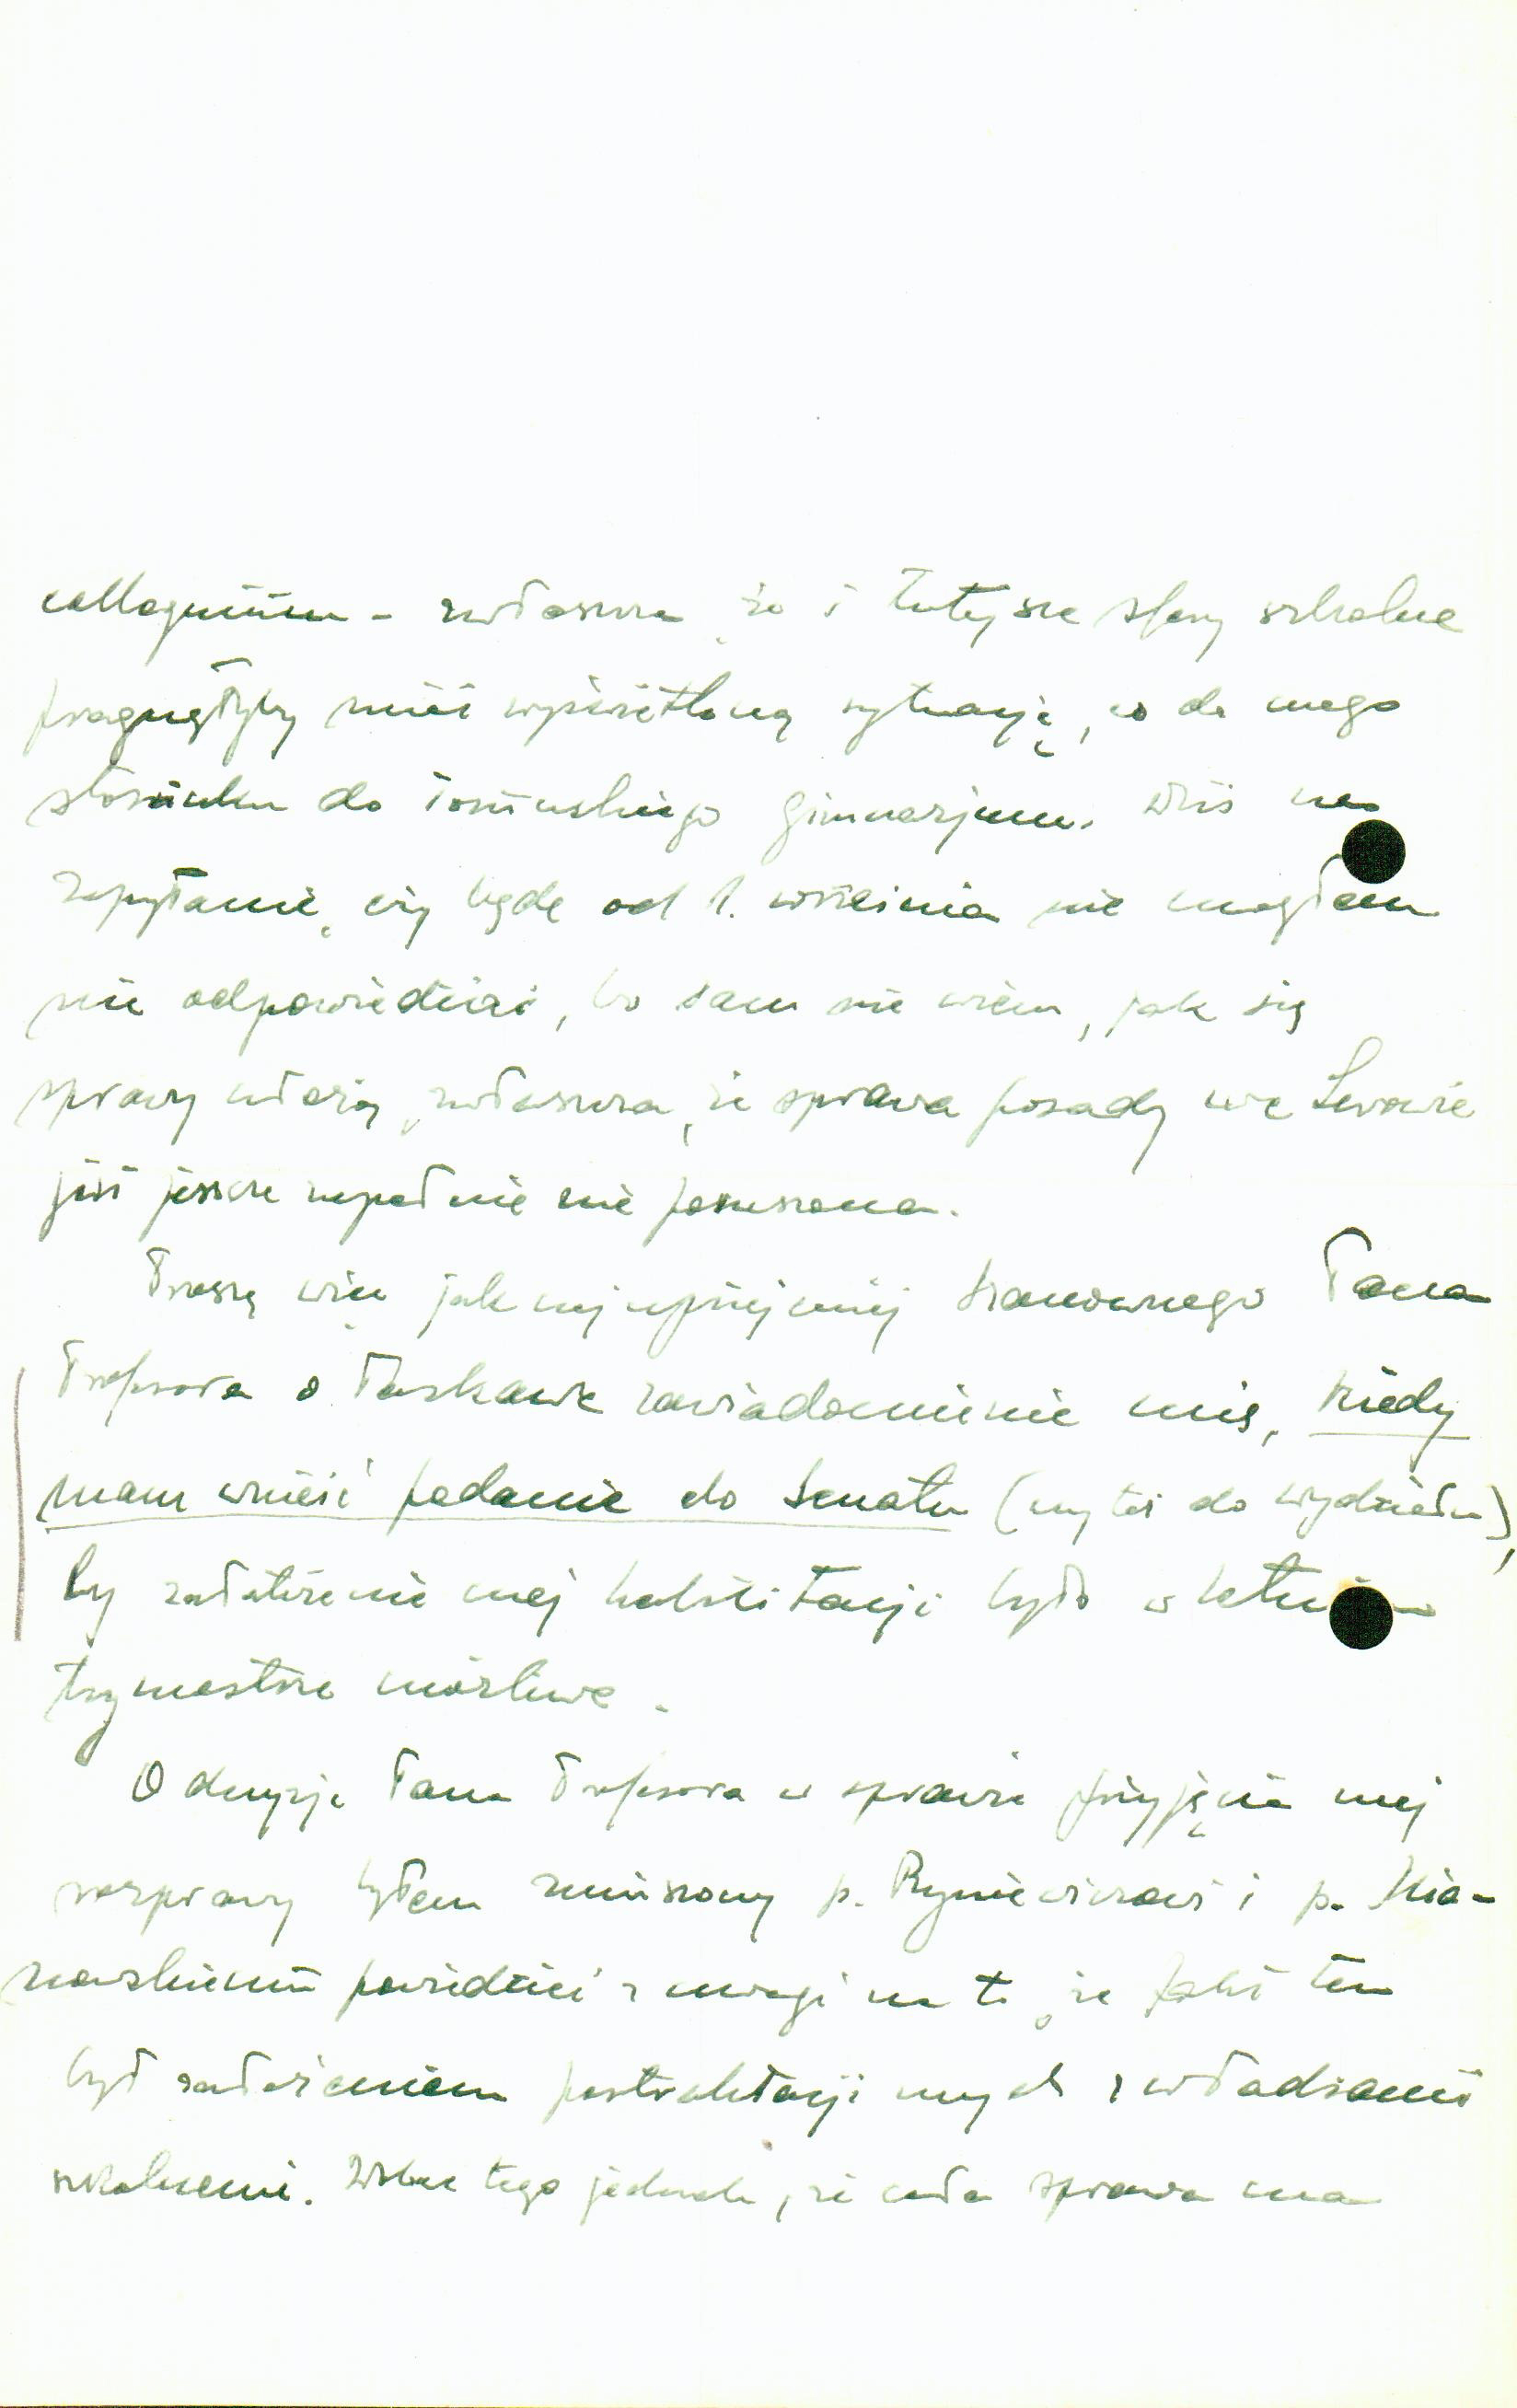 colloquium – zwłaszcza, że i tutejsze sfery szkolne
pragnęłyby mieć wyświetloną sytuację, co do mego
stosunku do toruńskiego gimnazjum. Dziś na
zapytanie, czy będę od 1. września nie mogłem
nic odpowiedzieć, bo sam nie wiem, jak się
sprawy ułożą, zwłaszcza, że sprawa posady we Lwowie
jest jeszcze zupełnie nie poruszona.
Proszę więc jak najuprzejmiej Szanownego Pana
Profesora o łaskawe zawiadomienie mię, kiedy
mam wnieść podanie do Senatu (czy też do wydziału),
by załatwienie mej habilitacji było w letnim
trymestrze możliwe.
O decyzji Pana Profesora w sprawie przyjęcia mej
rozprawy byłem zmuszony p. Ryniewiczowi i p.
powiedzieć z uwagi na to, że fakt ten
był założeniem pertraktacji mych z władzami
szkolnemi. Wobec tego jednak, że cała sprawa ma